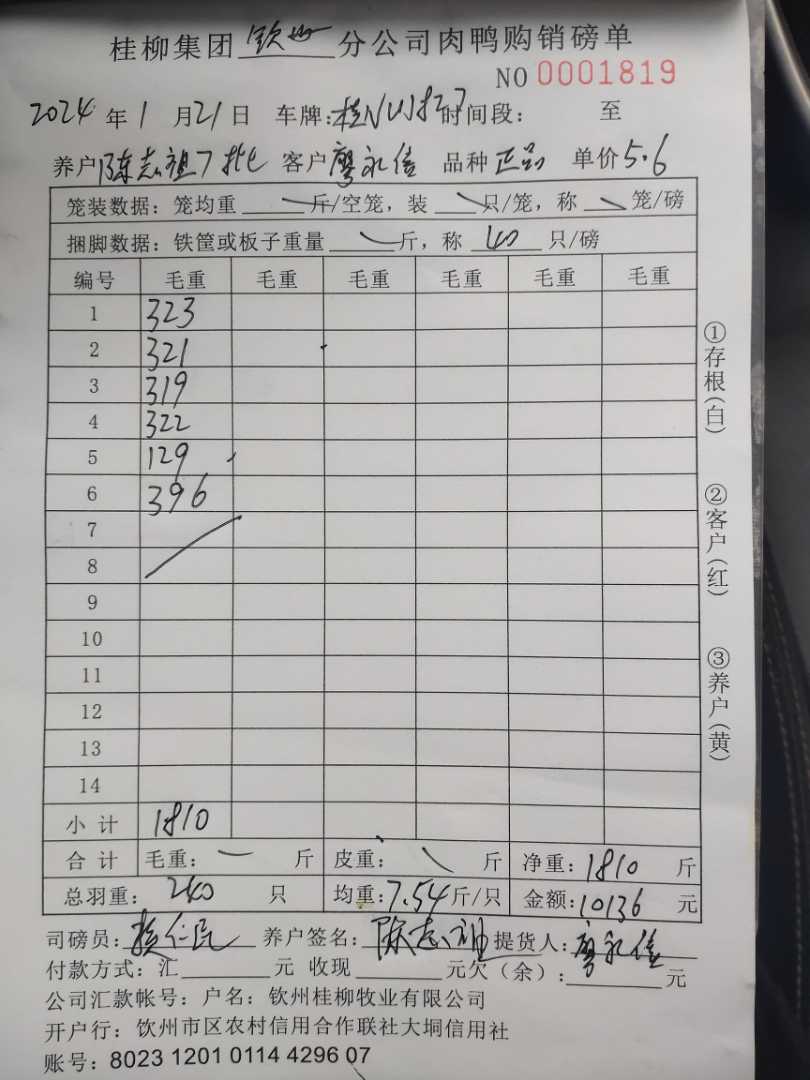 桂柳集团 钦州 分公司肉鸭购销磅单
NO 0001819
2024 年 1 月 21 日 车牌: 时间段: 至
养户 陈志祖7批 客户 廖永信 品种 正品 单价 5.6
笼装数据: 笼均重 斤/空笼, 装 只/笼, 称 笼/磅
捆脚数据: 铁筐或板子重量 斤, 称 40 只/磅
编号 毛重 毛重 毛重 毛重 毛重 毛重
1 323
2 321
3 319
4 322
5 129
6 396
7
8
9
10
11
12
13
14
小计 1810
合计 毛重: 斤 皮重: 斤 净重: 1810 斤
总羽重: 240 只 均重: 7.54 斤/只 金额: 10136 元
司磅员: 养户签名: 陈志祖 提货人: 廖永信
付款方式: 汇 元 收现 元欠(余): 元
公司汇款帐号: 户名: 钦州桂柳牧业有限公司
开户行: 钦州市区农村信用合作联社大垌信用社
账号: 8023 1201 0114 4296 07
①存根(白)
②客户(红)
③养户(黄)